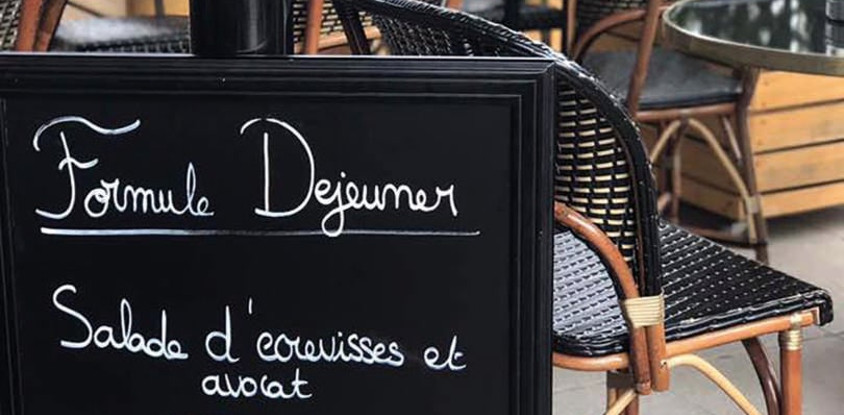 Formule Dejeuner
Salade d'ecrevisses et
avocat